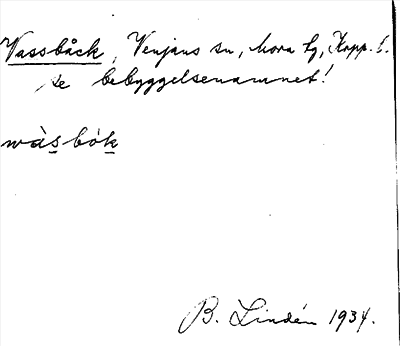 Vassbåck, Venjans sn, Mora tg, Kopp. l.
se bebyggelsenamnet!
wàsbók
B. Lindén 1934.